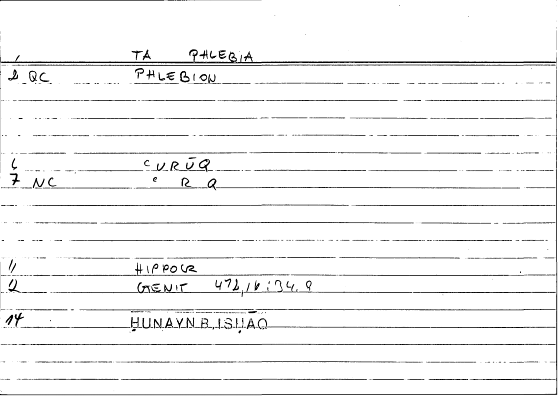 1 TA PHLEBIA
2 QC PHLEBION
6 ʿURŪQ
7 NC ʿ R Q
11 HIPPOCR
12 GENIT 472,16:34.9
14 ḤUNAYN B. ISḤĀQ